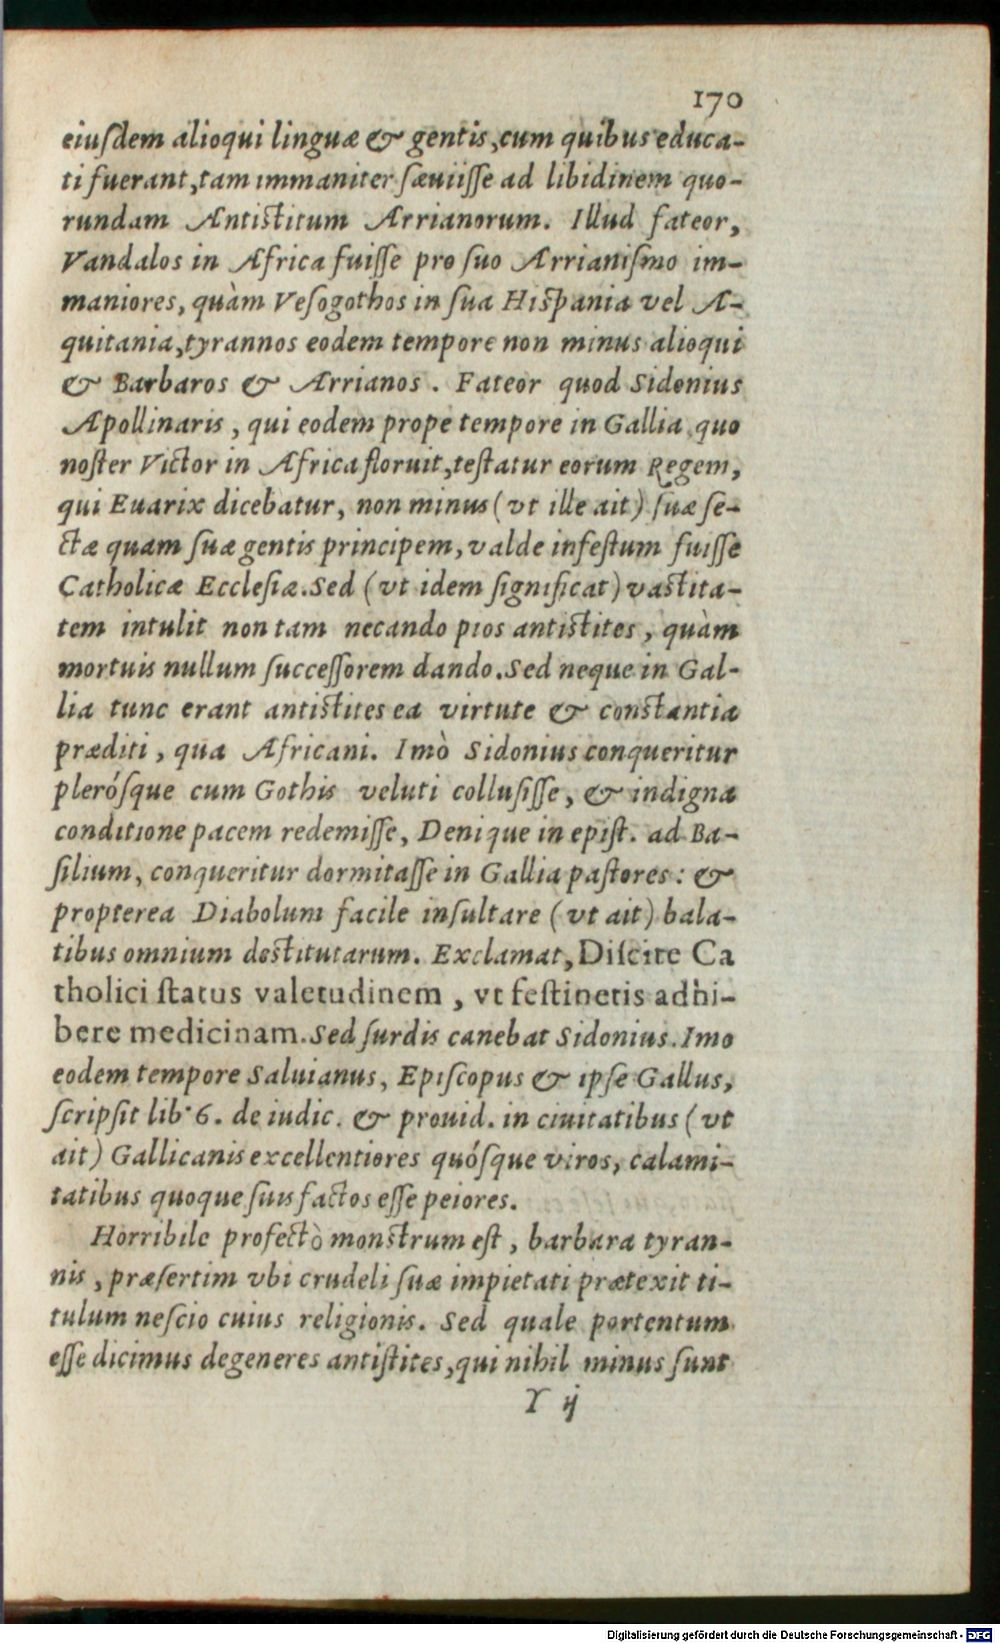 170
eiusdem alioqui linguæ & gentis, cum quibus educa-
ti fuerant, tam immaniter sæuiisse ad libidinem quo-
rundam Antistitum Arrianorum. Illud fateor,
Vandalos in Africa fuisse pro suo Arrianismo im-
maniores, quàm Vesogothos in sua Hispania vel A-
quitania, tyrannos eodem tempore non minus alioqui
& Barbaros & Arrianos. Fateor quod Sidonius
Apollinaris, qui eodem prope tempore in Gallia quo
noster Victor in Africa floruit, testatur eorum Regem,
qui Euarix dicebatur, non minus (vt ille ait) suæ se-
ctæ quam suæ gentis principem, valde infestum fuisse
Catholicæ Ecclesiæ. Sed (vt idem significat) vastita-
tem intulit non tam necando pios antistites, quàm
mortuis nullum successorem dando. Sed neque in Gal-
lia tunc erant antistites ea virtute & constantia
præditi, qua Africani. Imò Sidonius conqueritur
plerósque cum Gothis veluti collusisse, & indigna
conditione pacem redemisse, Denique in epist. ad Ba-
silium, conqueritur dormitasse in Gallia pastores: &
propterea Diabolum facile insultare (vt ait) bala-
tibus omnium destitutarum. Exclamat, Discite Ca
tholici status valetudinem, vt festinetis adhi-
bere medicinam. Sed surdis canebat Sidonius. Imo
eodem tempore Saluianus, Episcopus & ipse Gallus,
scripsit lib. 6. de iudic. & prouid. in ciuitatibus (vt
ait) Gallicanis excellentiores quósque viros, calami-
tatibus quoque suis factos esse peiores.
Horribile profectò monstrum est, barbara tyran-
nis, præsertim vbi crudeli suæ impietati prætexit ti-
tulum nescio cuius religionis. Sed quale portentum
esse dicimus degeneres antistites, qui nihil minus sunt
Y ij
Digitalisierung gefördert durch die Deutsche Forschungsgemeinschaft - DFG